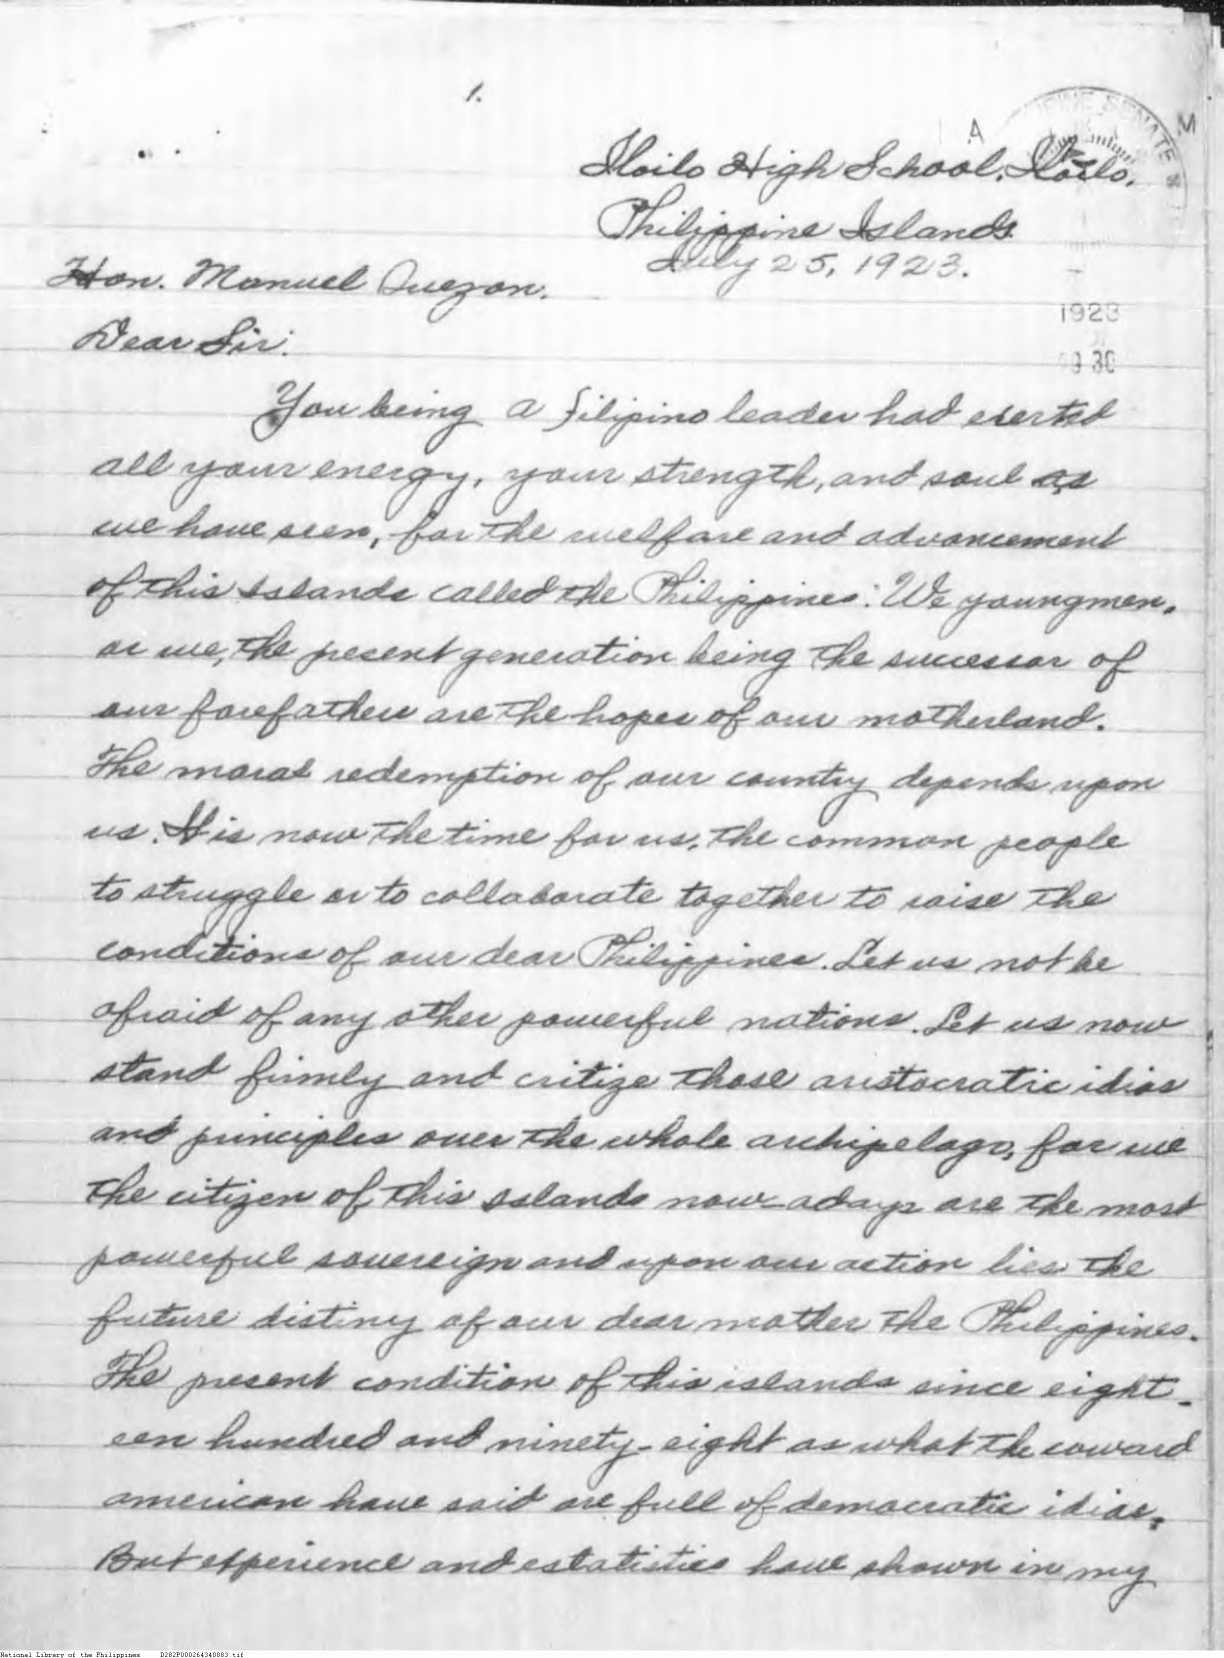 1.
Iloilo High School, Iloilo,
Philippine Islands
July 25, 1923.
Hon. Manuel Quezon.
Dear Sir:
1923
9 30
You being a filipino leader had exerted
all your energy, your strength, and soul as
we have seen, for the welfare and advancement
of this Islands called the Philippines. We youngmen,
or we, the present generation being the successor of
our forefathers are the hopes of our motherland.
The moral redemption of our country depends upon
us. It is now the time for us, the common people
to struggle or to collaborate together to raise the
conditions of our dear Philippines. Let us not be
afraid of any other powerful nations. Let us now
stand firmly and critize those aristocratic idias
and principles over the whole archipelago, for we
the citizen of this islands now-adays are the most
powerful sovereign and upon our action lies the
future distiny of our dear mother the Philippines.
The present condition of this islands since eight-
een hundred and ninety-eight as what the coward
american have said are full of democratic idias.
But experience and estatistics have shown in my
National Library of the Philippines D282P000264340883.tif